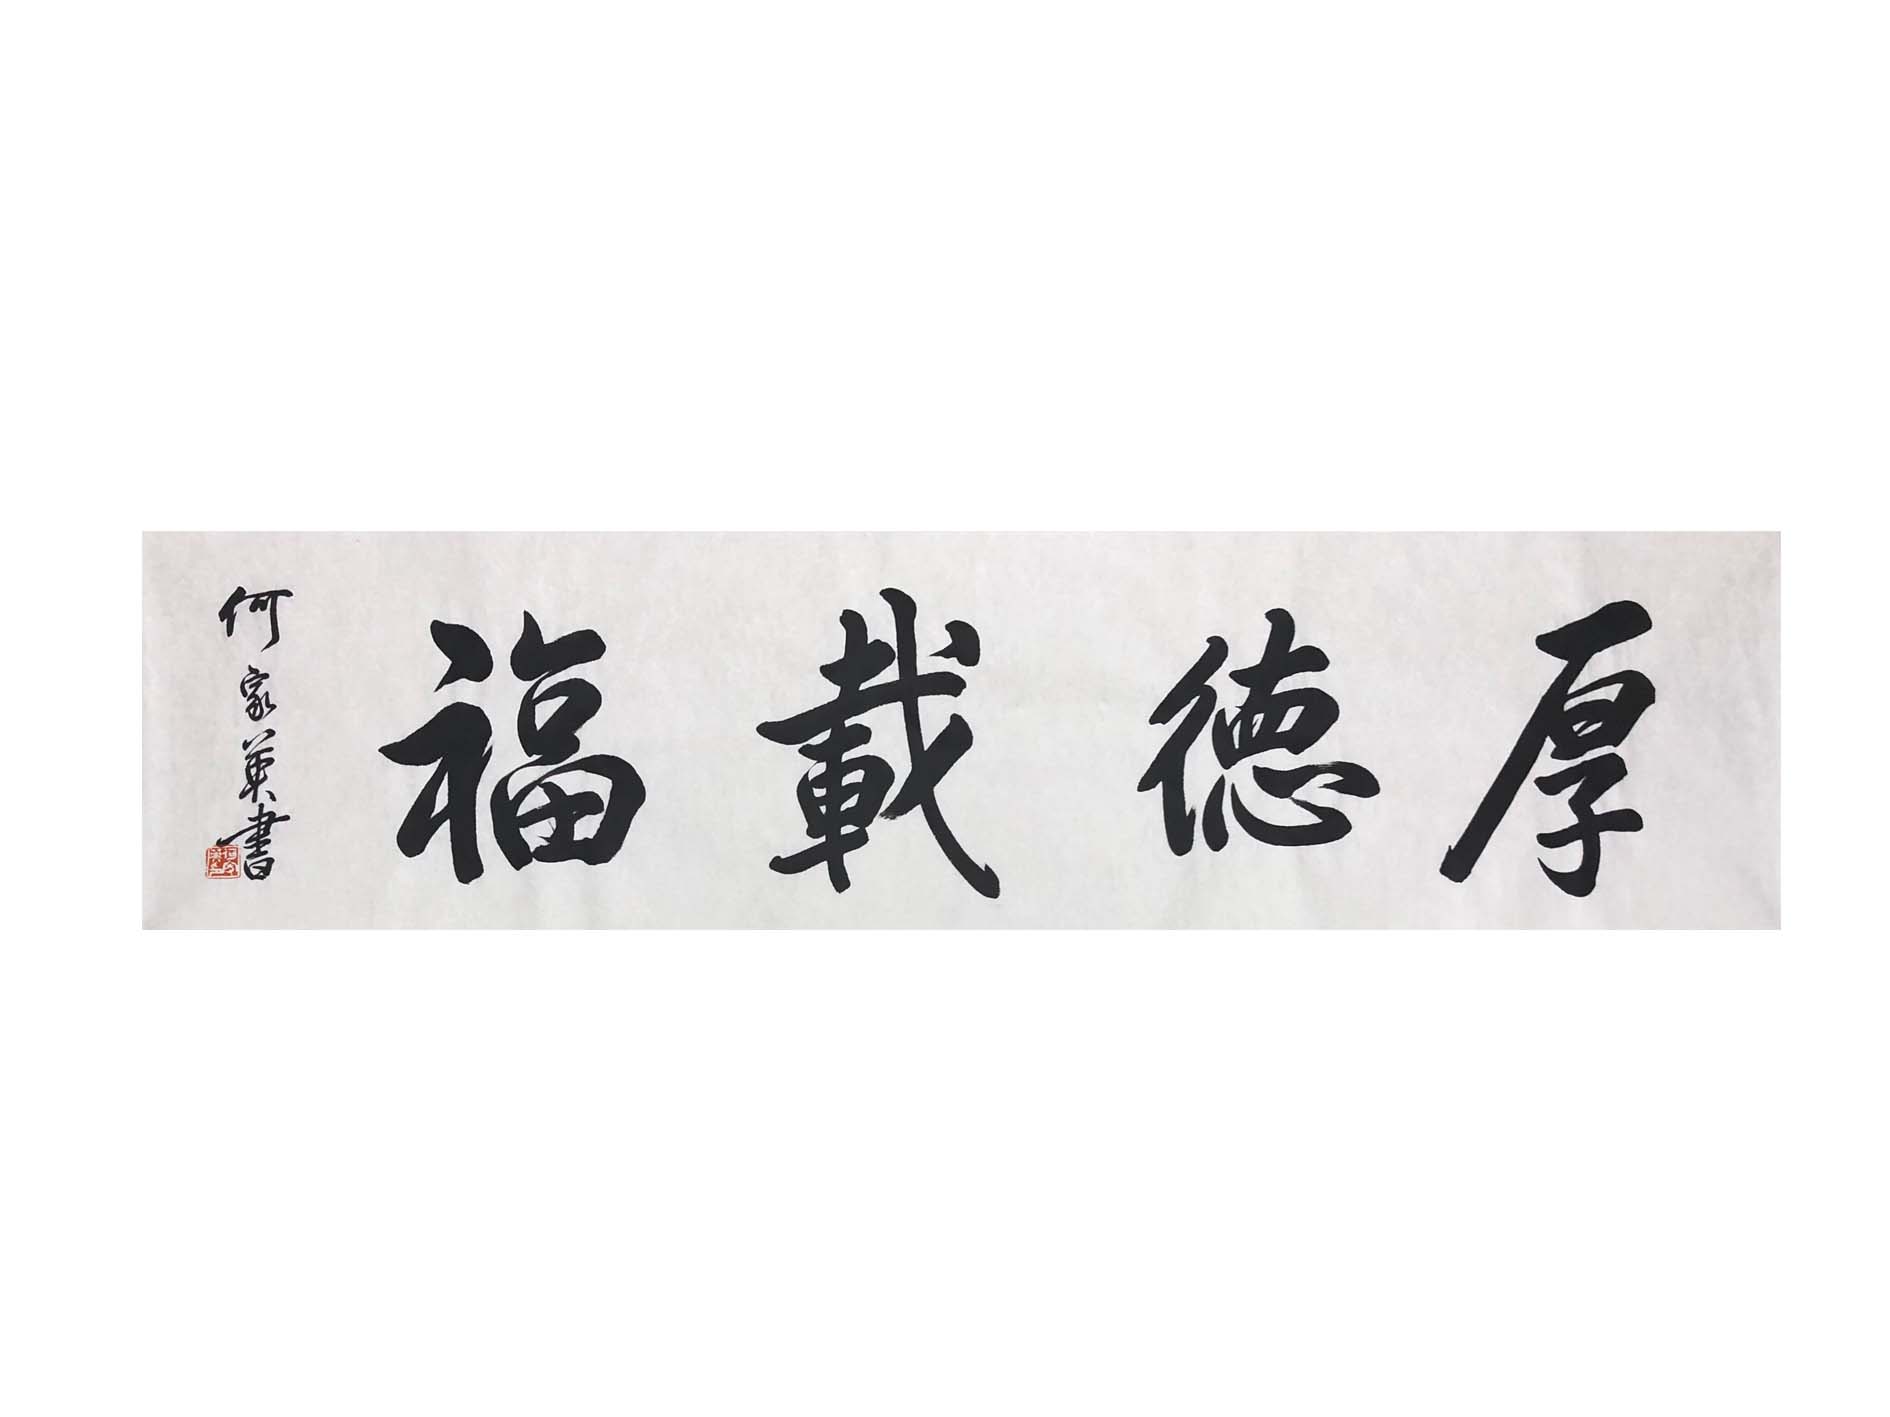 厚德載福
何家英書